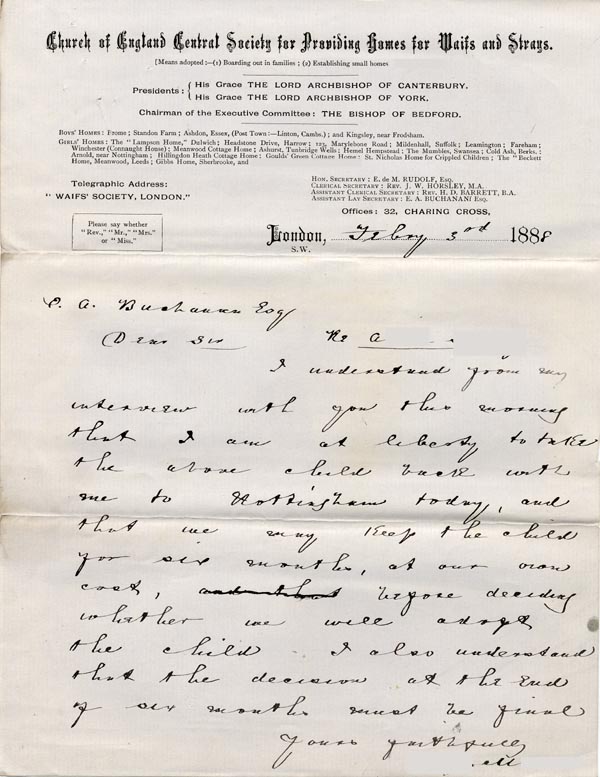 Church of England Central Society for Providing Homes for Waifs and Strays.
[Means adopted:—(1) Boarding out in families; (2) Establishing small homes
Presidents: { His Grace THE LORD ARCHBISHOP OF CANTERBURY.
His Grace THE LORD ARCHBISHOP OF YORK.
Chairman of the Executive Committee: THE BISHOP OF BEDFORD.
BOYS' HOMES: Frome; Standon Farm; Ashdon, Essex, (Post Town:—Linton, Cambs.); and Kingsley, near Frodsham.
GIRLS' HOMES: The "Lampson Home," Dulwich; Headstone Drive, Harrow; 123, Marylebone Road; Mildenhall, Suffolk; Leamington; Fareham;
Winchester (Connaught Home); Meanwood Cottage Home; Ashurst, Tunbridge Wells; Hemel Hempstead; The Mumbles, Swansea; Cold Ash, Berks.
Arnold, near Nottingham; Hillingdon Heath Cottage Home; Goulds' Green Cottage Home; St. Nicholas Home for Crippled Children; The "Beckett
Home, Meanwood, Leeds; Gibbs Home, Sherbrooke, and
Telegraphic Address:
"WAIFS' SOCIETY, LONDON."
HON. SECRETARY: E. DE M. RUDOLF, ESQ.
CLERICAL SECRETARY: REV. J. W. HORSLEY, M.A.
ASSISTANT CLERICAL SECRETARY: REV. H. D. BARRETT, B.A.
ASSISTANT LAY SECRETARY: E. A. BUCHANAN ESQ.
Offices: 32, CHARING CROSS,
Please say whether
"Rev.," "Mr.," "Mrs."
or "Miss."
London, Febry 3rd 1888
S.W.
E. A. Buchanan Esq
Dear Sir Re A
I understand from my
interview with you this morning
that I am at liberty to take
the above child back with
me to Nottingham today, and
that we may keep the child
for six months, at our own
cost, and that before deciding
whether we will adopt
the child. I also understand
that the decision at the end
of six months must be final
Yours faithfully